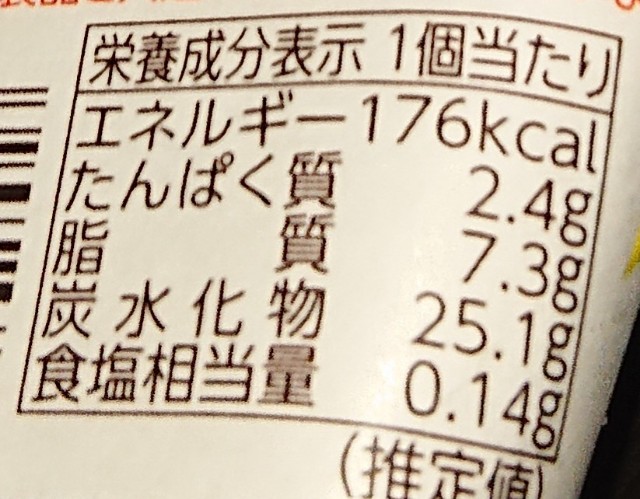 栄養成分表示 1個当たり
エネルギー 176kcal
たんぱく質 2.4g
脂質 7.3g
炭水化物 25.1g
食塩相当量 0.14g
(推定値)